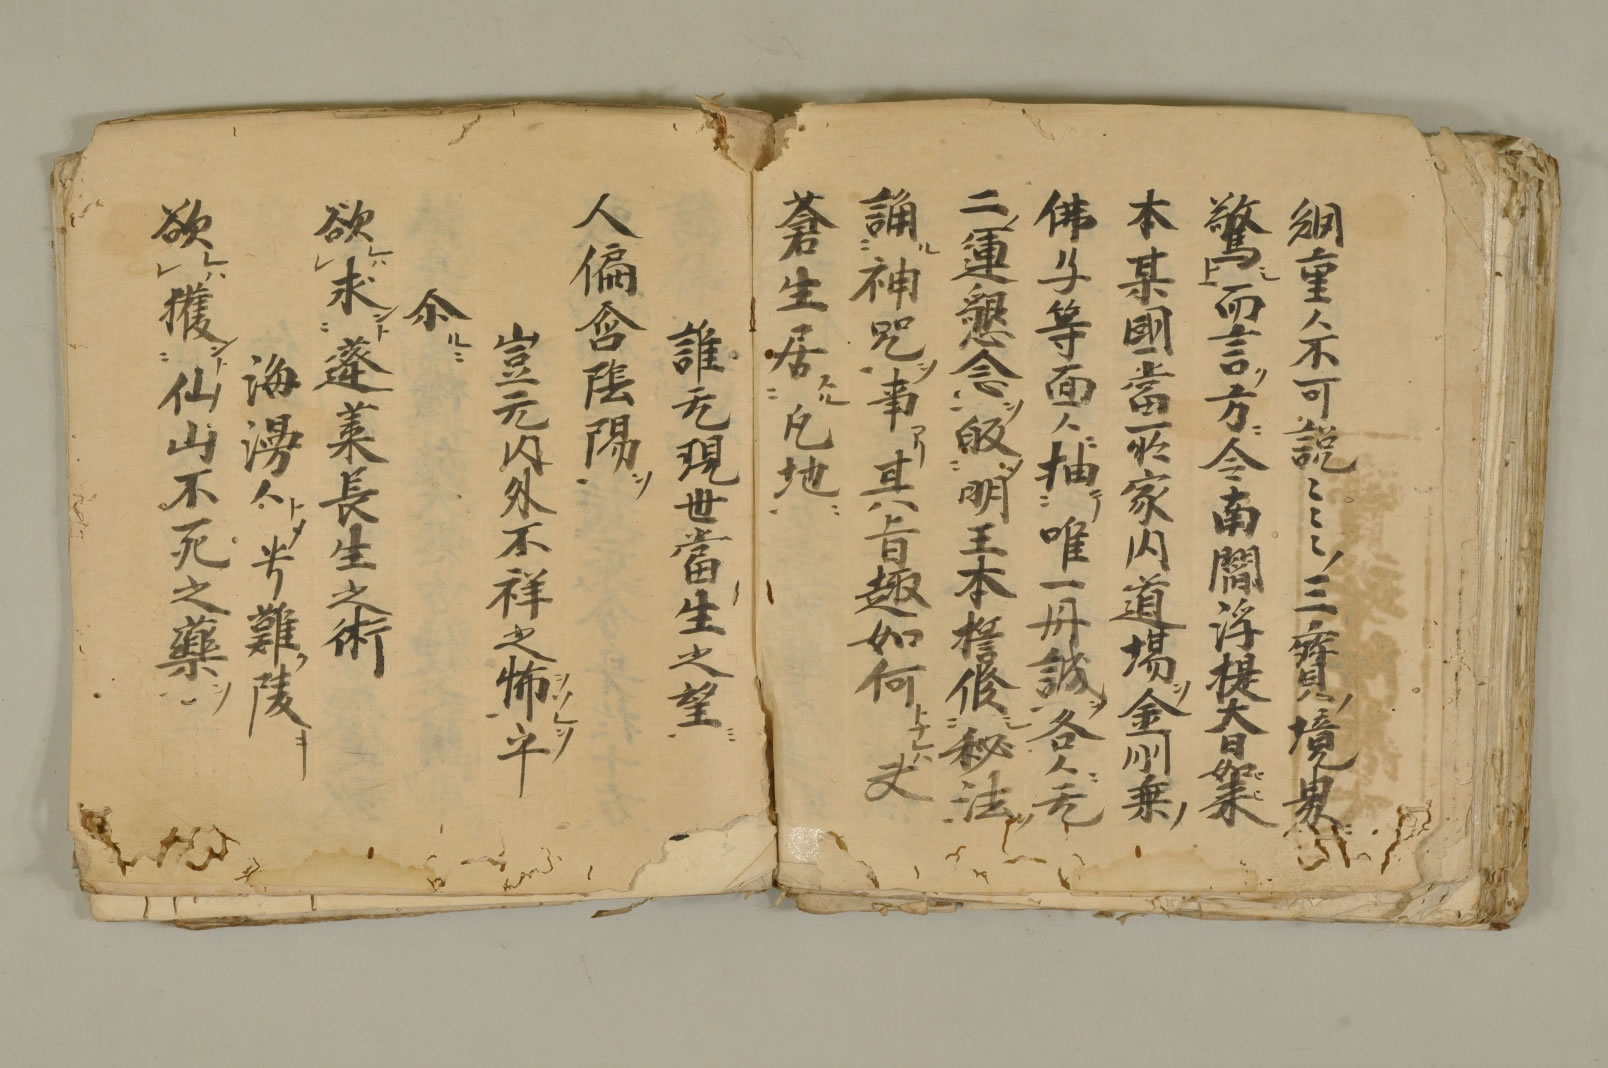 網重人不可説〻〻〻三寳境界
驚而言方今南閻浮提大日如来
本某國當所家内道場金剛乗
佛子等面人抽唯一丹誠各人无
二運懇念皈明王本誓修秘法
誦神咒事其旨趣如何夫
蒼生居凡地
誰无現世當生之望
人偏含陰陽
豈无内外不祥之怖乎
尒
欲求蓬萊長生之術
海漫人兮難陵
欲獲仙山不死之藥